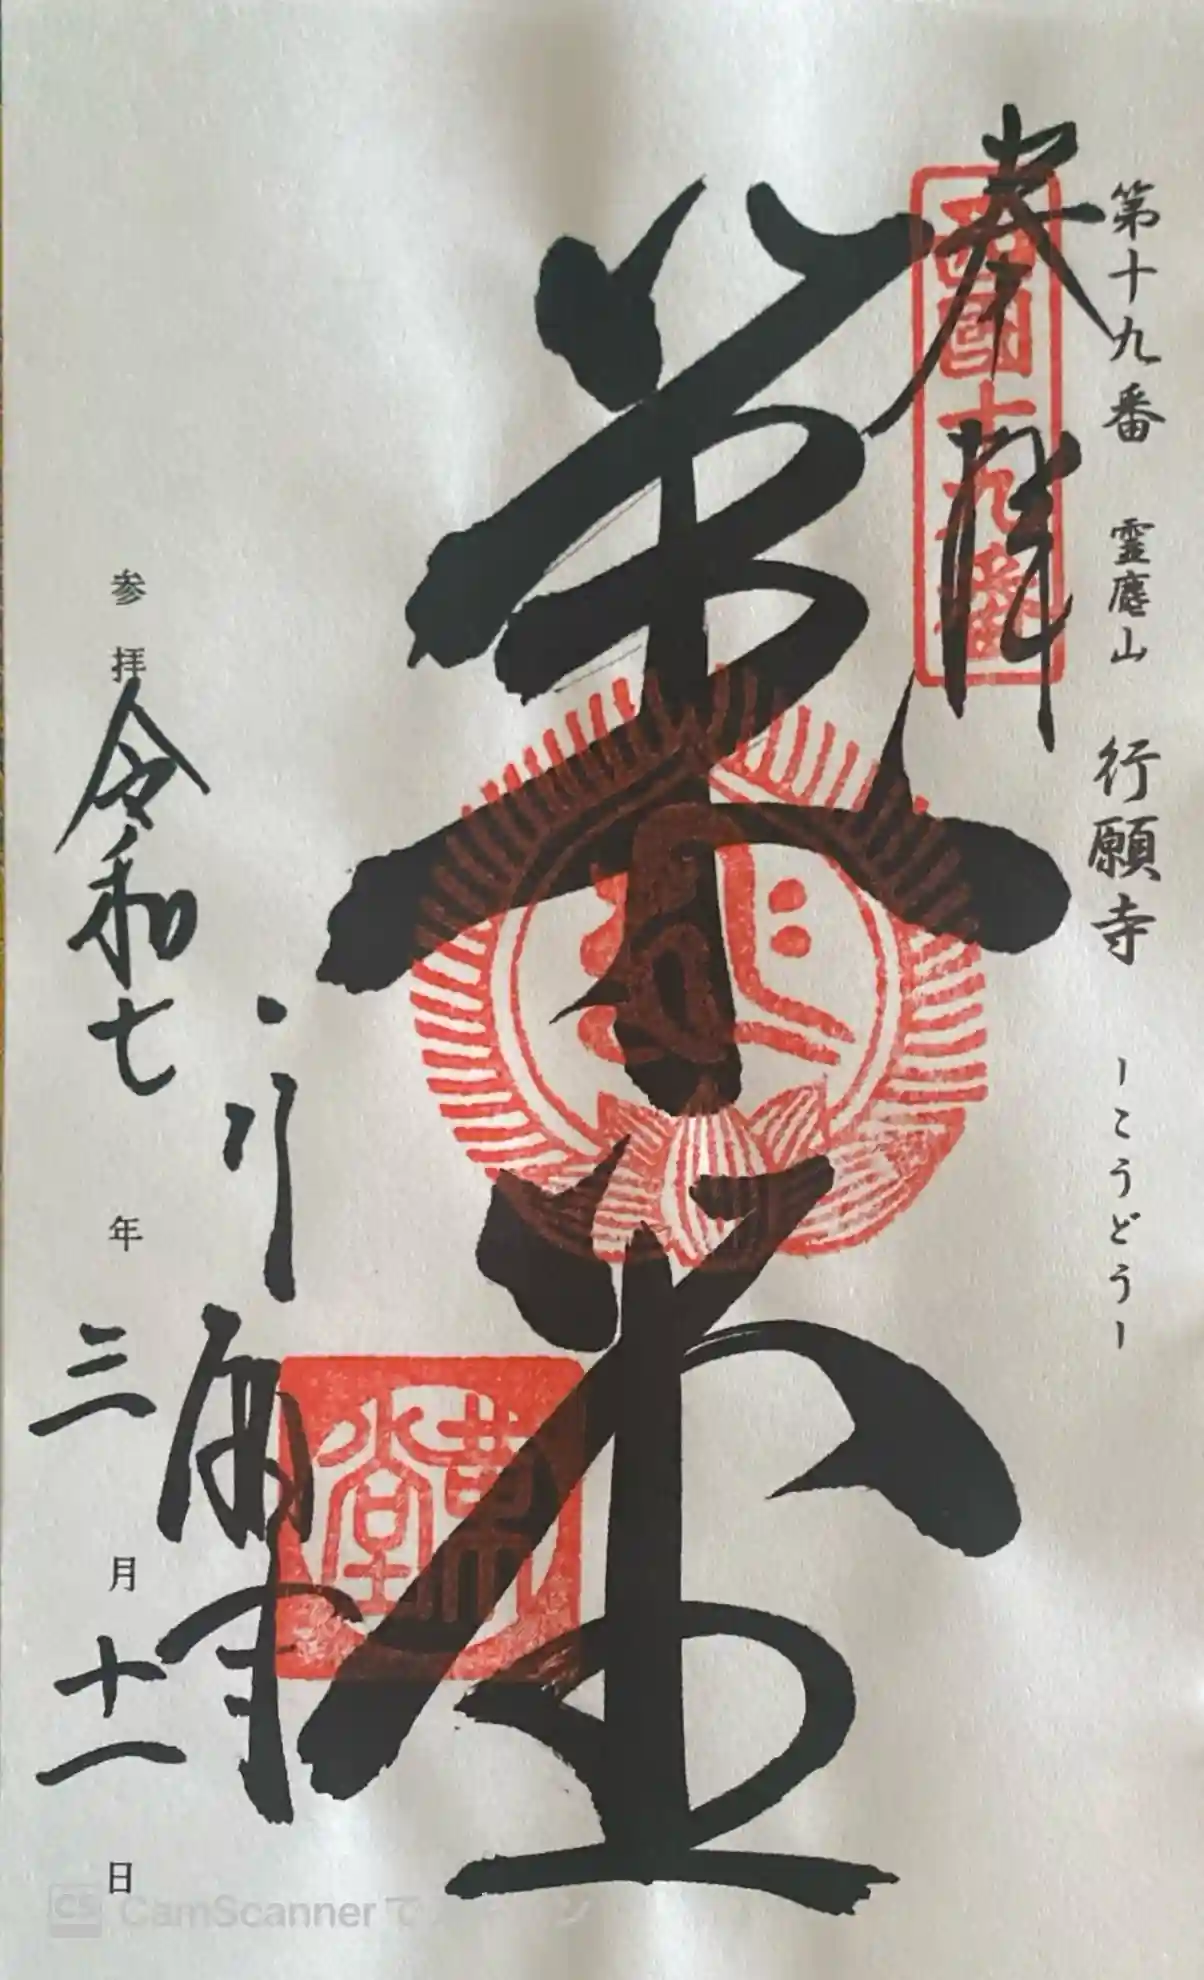 第十九番 霊麀山 行願寺 ーこうどうー
奉拝
西國十九番
革堂
革堂
行願寺
参拝 令和七年三月十一日
CS CamScannerで